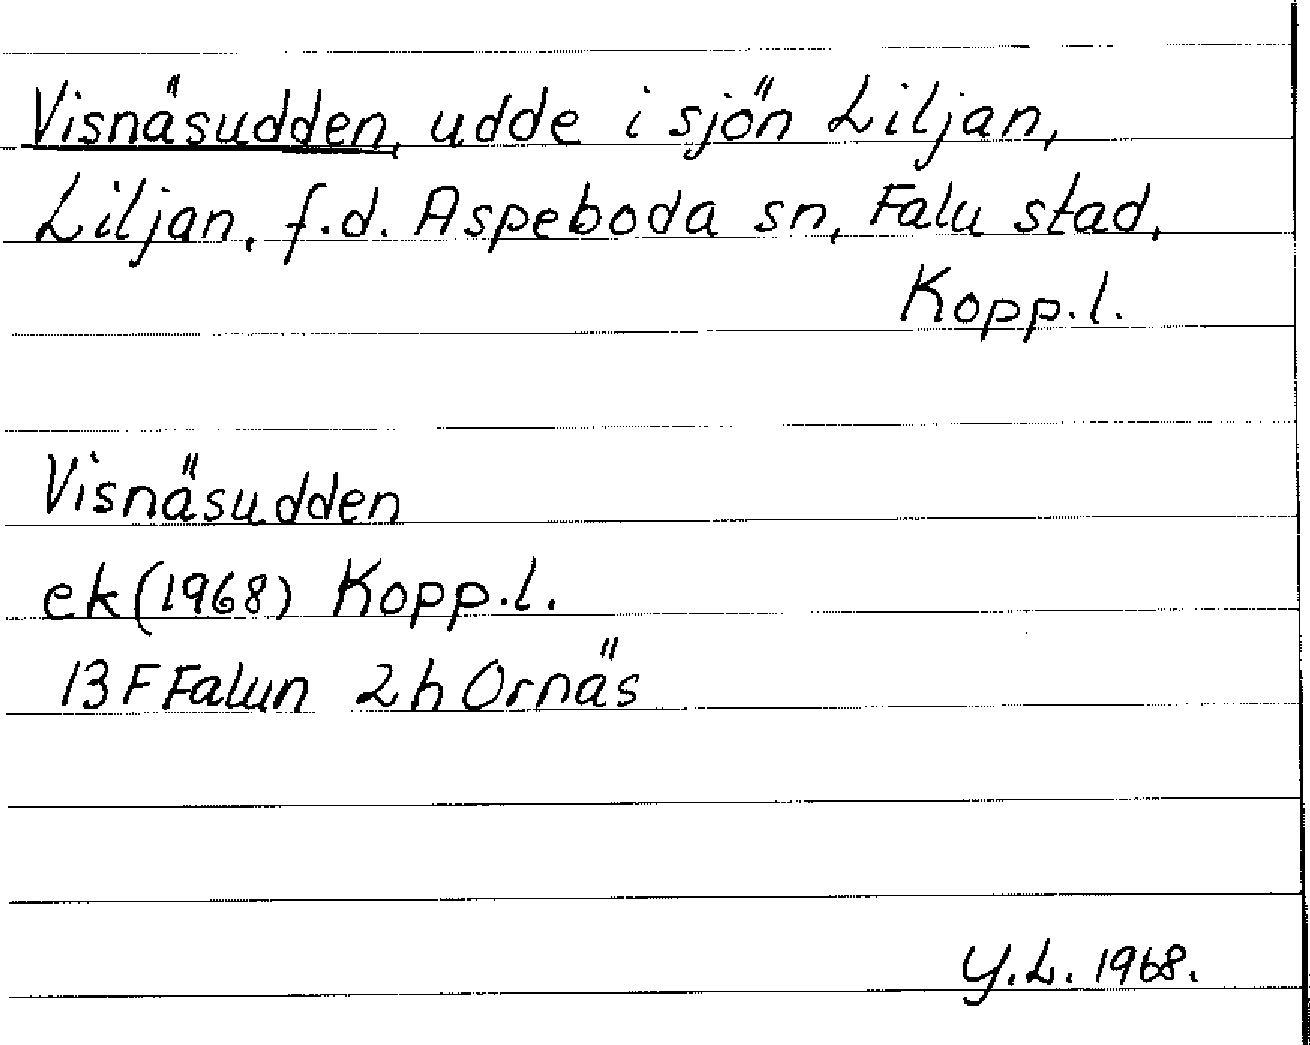 Visnäsudden, udde i sjön Liljan,
Liljan, f.d. Aspeboda sn, Falu stad,
Kopp.l.
Visnäsudden
ek(1968) Kopp.l.
13F Falun 2h Ornäs
Y.L. 1968.